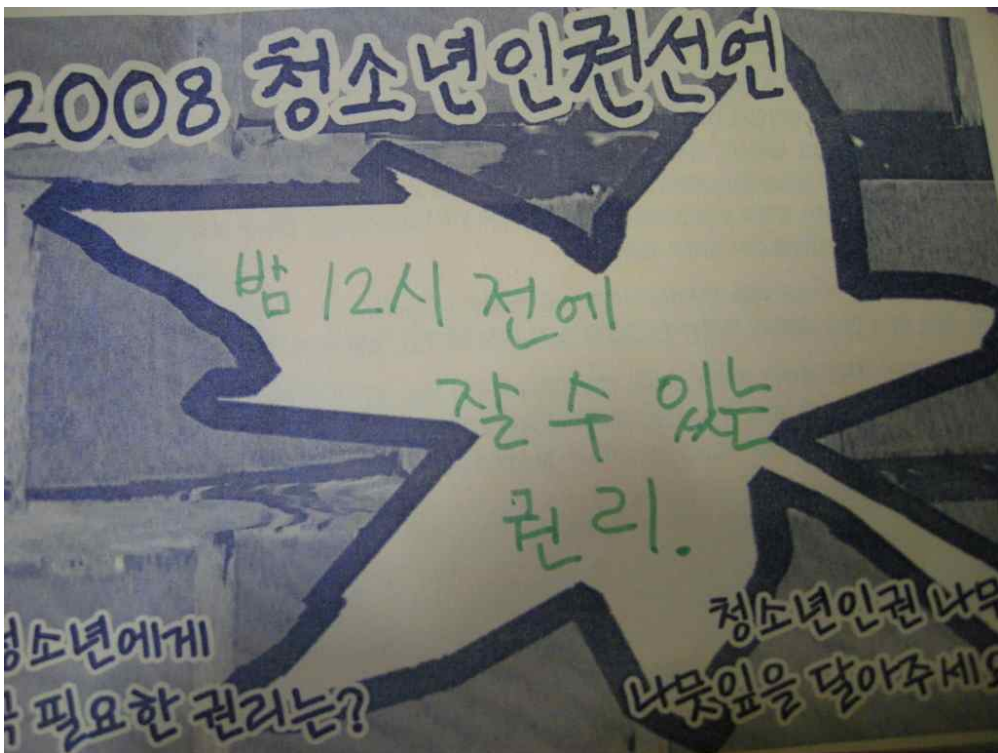 2008 청소년인권선언
밤 12시 전에
잘 수 있는
권리.
청소년에게
필요한 권리는?
청소년인권 나무
나뭇잎을 달아주세요